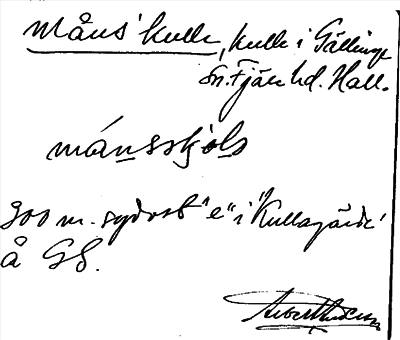 Måns' kulle, kulle i Gällinge
sn. Fjäre hd. Hall.
månsskjols
300 m. sydost "e" i "Kullagärde"
å GS.